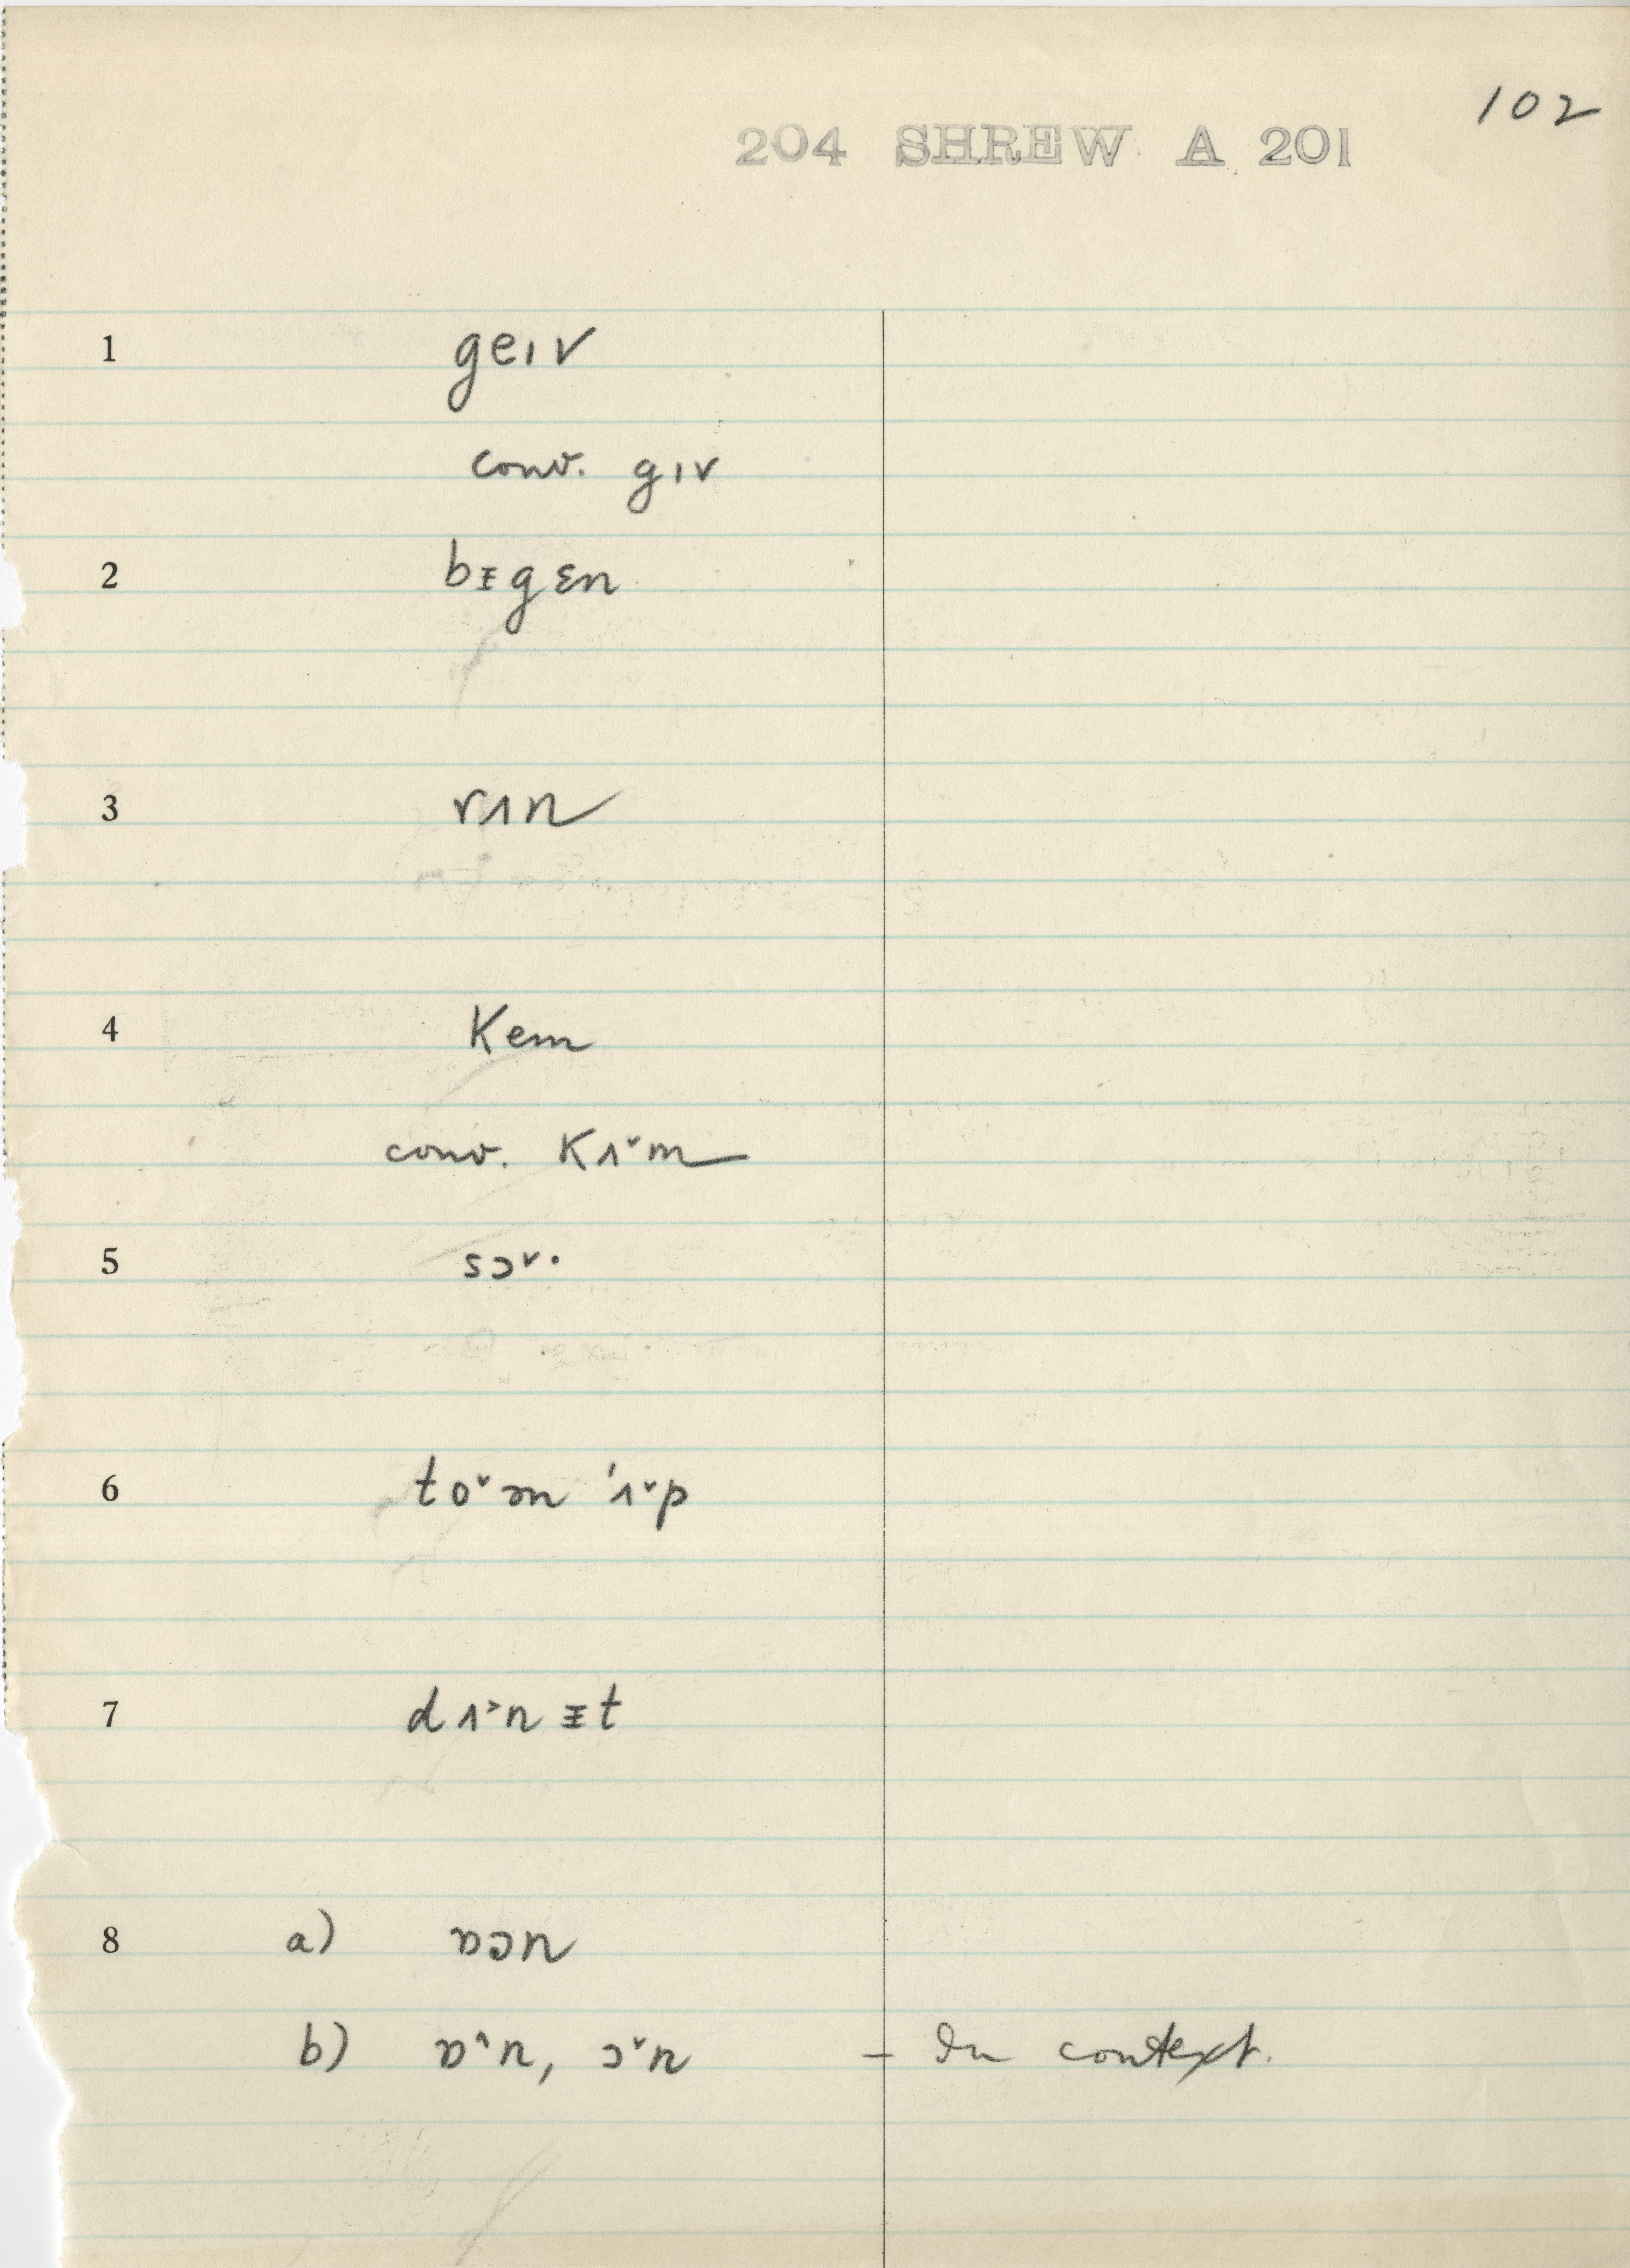 102
204 SHREW A 201
1 geɪv
conv. gɪv
2 bᵻgɛn
3 rʌn
4 Kem
conv. Kʌ˅m
5 sɔ˅·
6 to˅əm 'ʌ˅p
7 dʌ˃nᵻt
8 a) ɒɔn
b) ɒ˄n, ɔ˅n – In context.